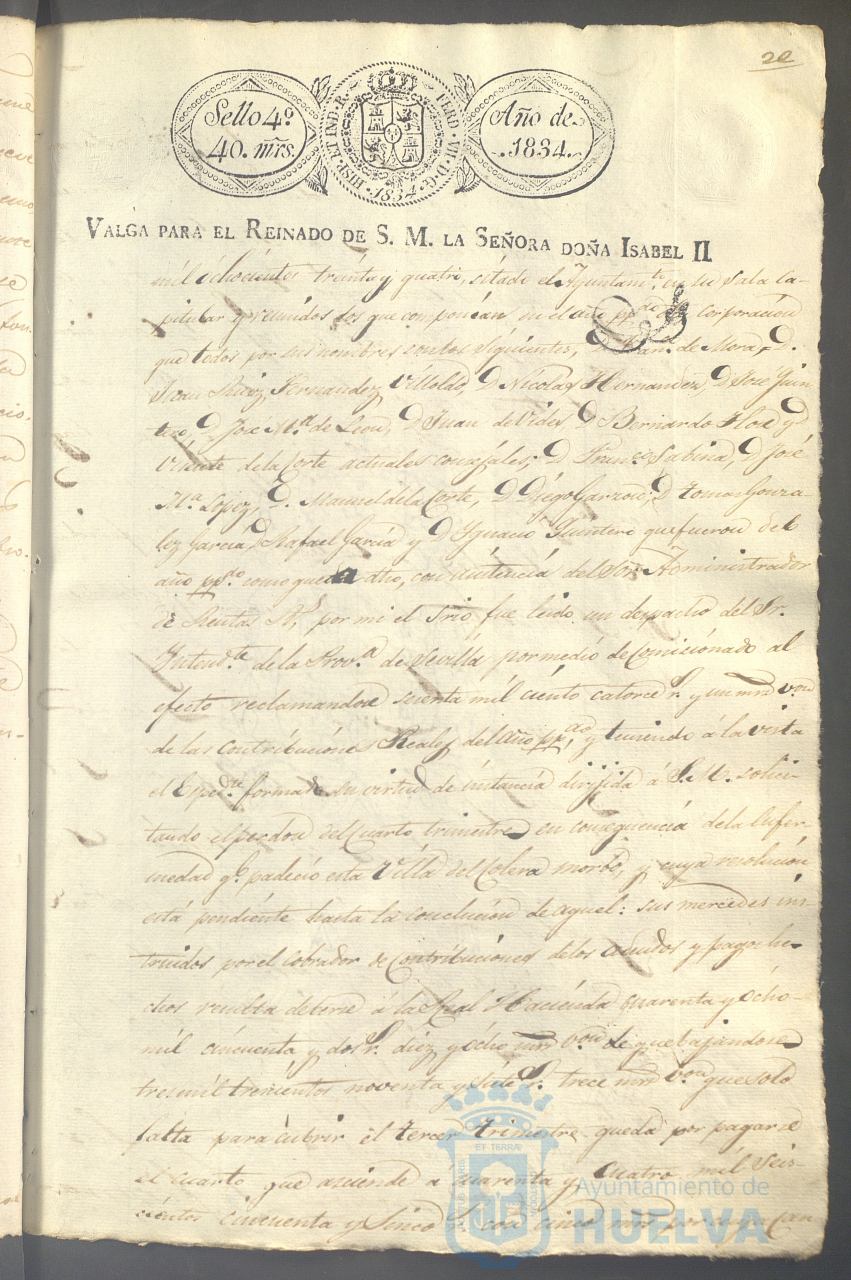 22
Sello 4º
40. mrs.
HISP. ET IND. R. FERD. VII. D. G.
1834
Año de
1834.
VALGA PARA EL REINADO DE S. M. LA SEÑORA DOÑA ISABEL II
mil ochocientos treinta y quatro, sitado el Ayuntamto. en su sala ca-
pitular y reunidos los que componian en el año ppdo. la corporacion
que todos por sus nombres son los siguientes, D. Fran. de Mora, D.
Fernandez Villoldo, D. Nicolas Hernandez, D. José Quin
tero, D. José Ma. de Leon, D. Juan de Vides, D. Bernardo Flor y D.
Vicente de la Corte actuales concejales; D. Franco. Sabina, D. José
Ma. Lopez, D. Manuel de la Corte, D. Diego Garzon, D. Tomas Gonza-
lez Garcia, D. Rafael Garcia y D. Ygnacio Quintero que fueron del
año ppdo. como queda dho, con asistencia del Sor. Administrador
de Rentas Rs, por mi el Srio fue leido un despacho del Sr.
Yntendte. de la Prova. de Sevilla por medio de Comicionado al
efecto reclamandose sesenta mil ciento catorce rs. y un mrs von
de las contribuciones Reales del año ppdo, y teniendo á la vista
el Espedte. formado en virtud de instancia dirijida á S. M. solici-
tando el perdon del cuarto trimestre en consequencia de la enfer-
medad qe. padeció esta Villa del Colera morbo, y cuya resolucion
está pendiente hasta la conclucion de aquel: sus mercedes ins-
truidos por el cobrador de Contribuciones de los adeudos y pagos he-
chos resulta deberse á la Real Hacienda quarenta y ocho
mil cincuenta y dos rs. diez y ocho mrs von. de que bajandose
tres mil trescientos noventa y siete rs. trece mrs von. que solo
falta para cubrir el tercer trimestre queda por pagarse
el cuarto que asciende á quarenta y cuatro mil seis-
cientos cincuenta y sinco rs. con cinco mrs por cuya can
ET TERRAE
Ayuntamiento de
HUELVA